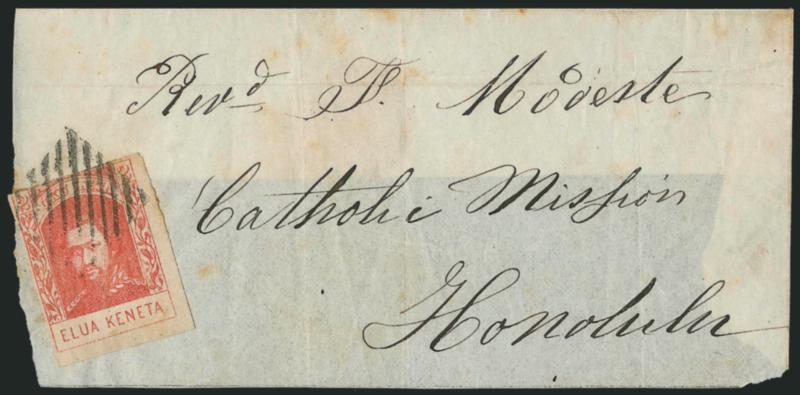 Revd. F. Modeste
Catholic Mission
Honolulu
ELUA KENETA